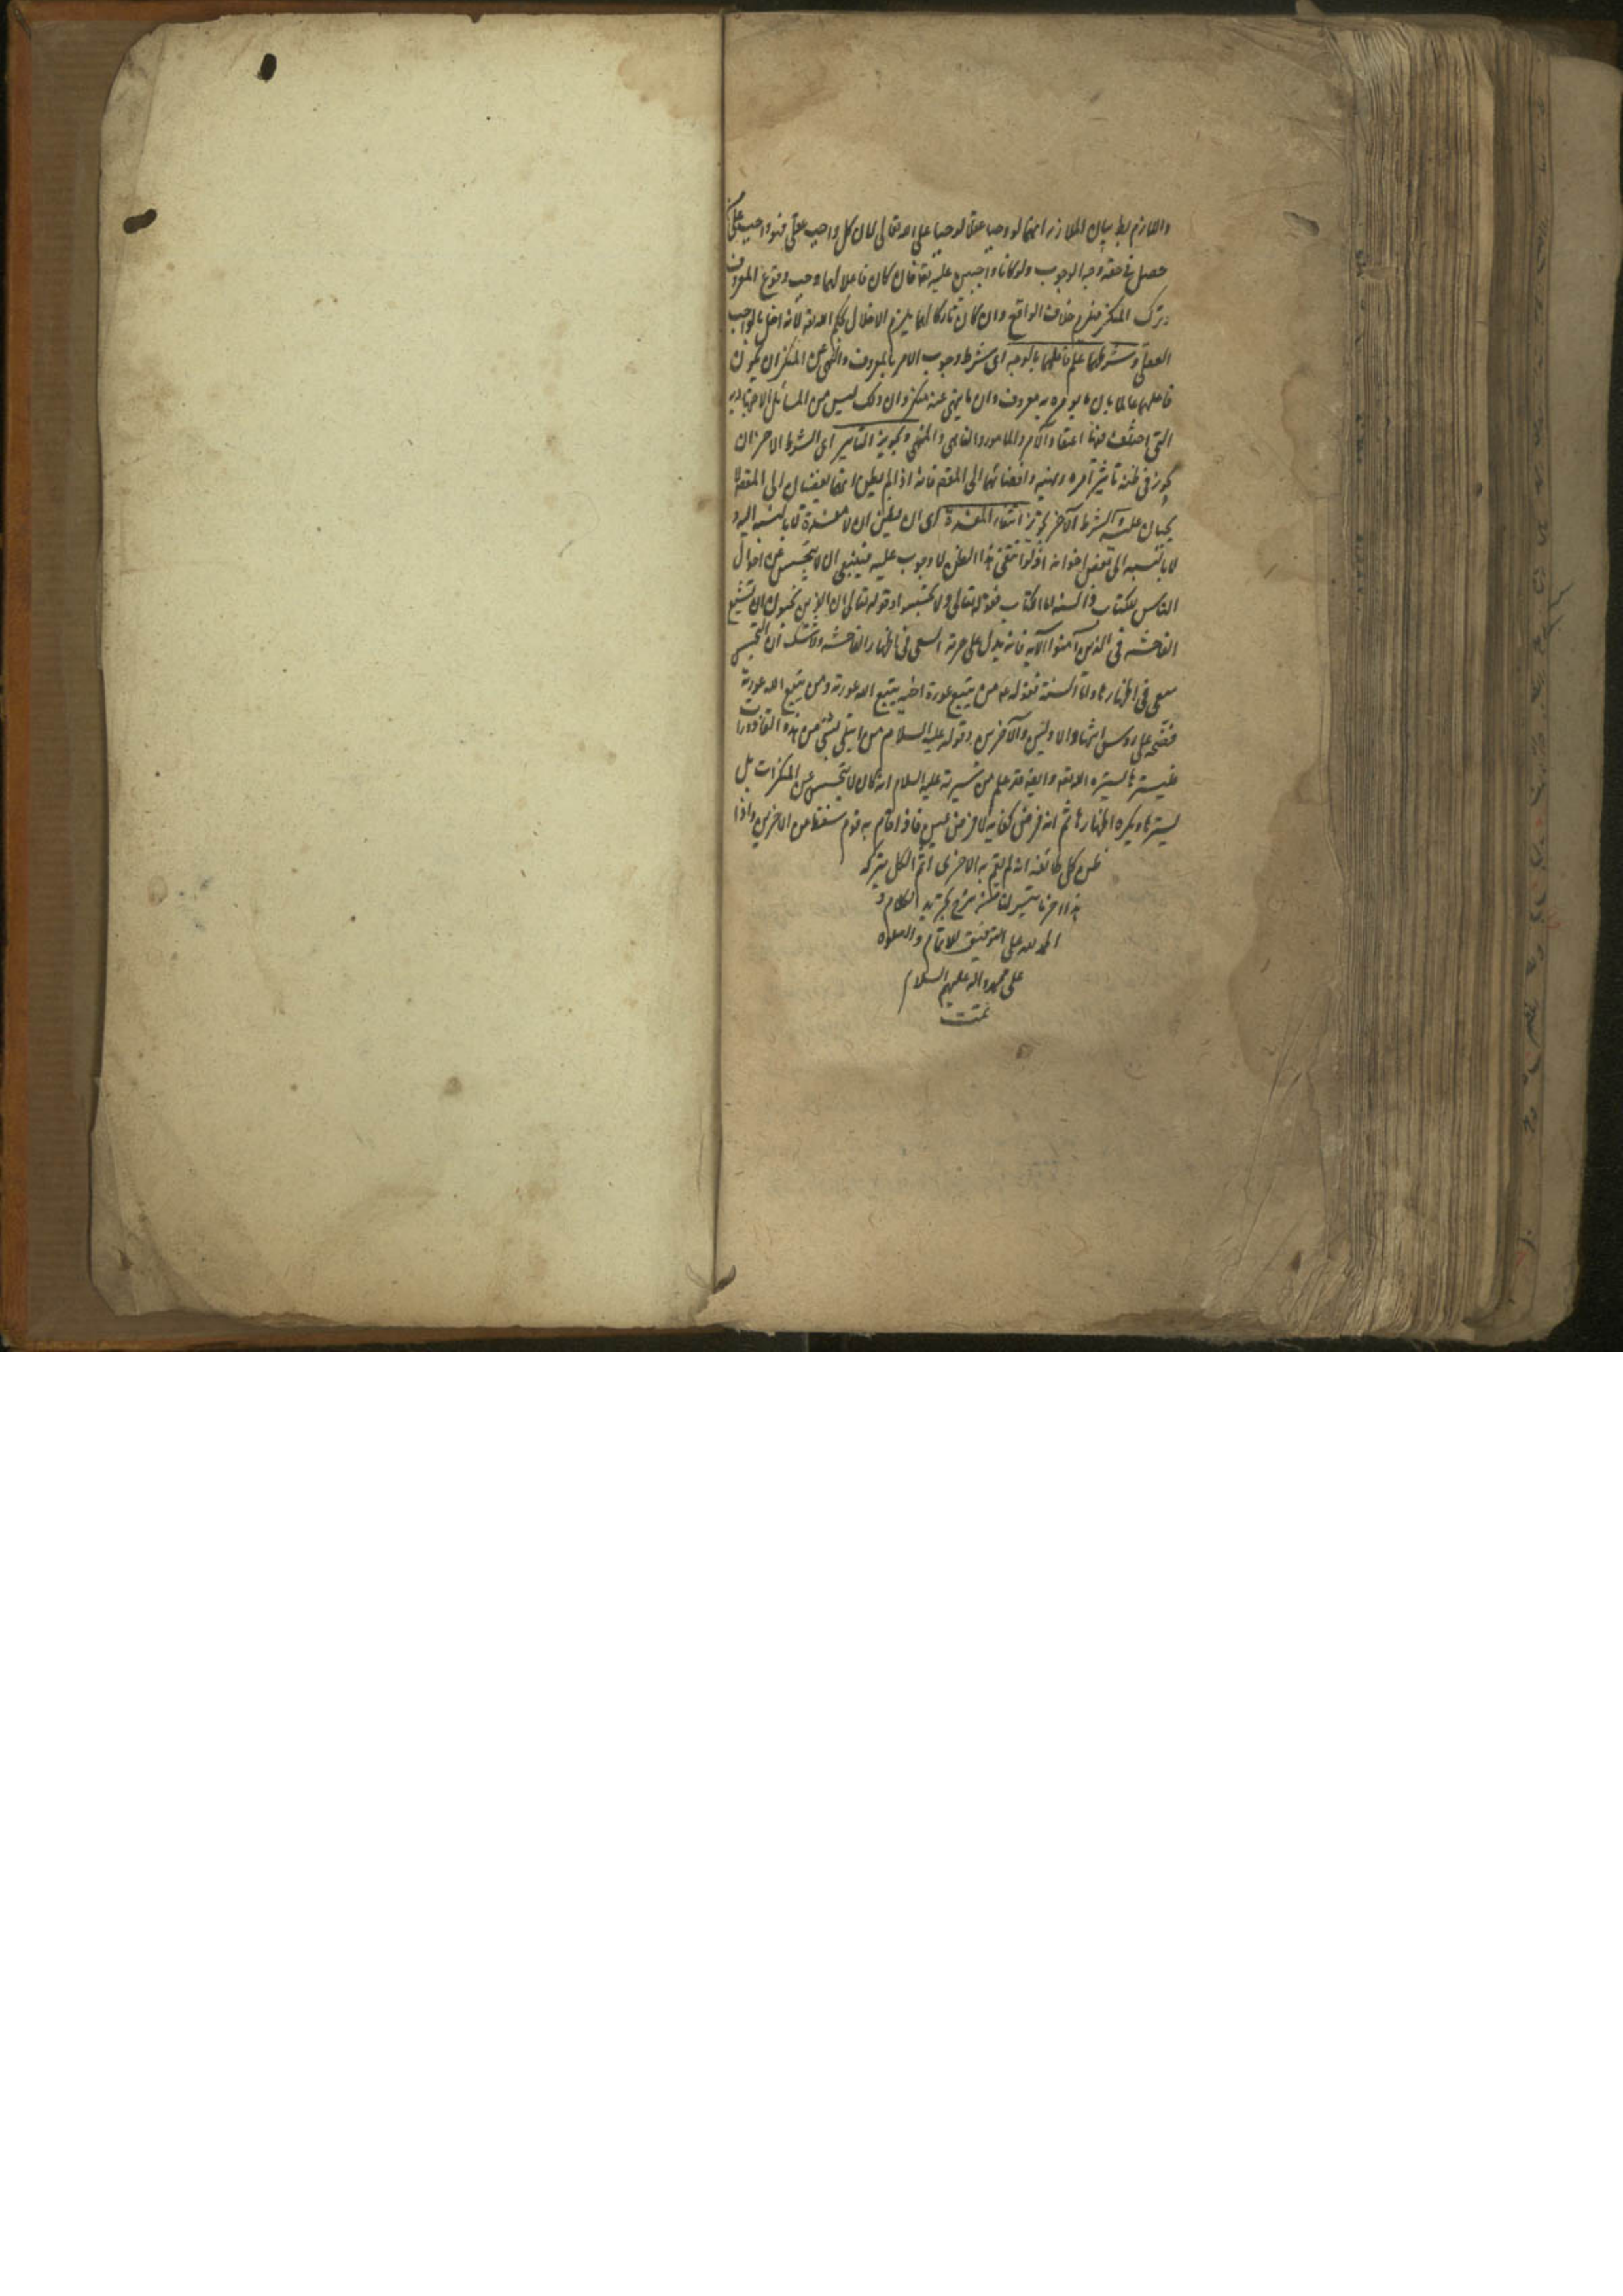 واللازم بط بيان الملازمة انهما لو وجبا عقلا لوجبا على الله تعالى لان كل واجب عقلى فهو واجب على كل من
حصل فى حقه وجه الوجوب ولو كانا واجبين عليه تعا فان كان فاعلا لهما وجب وقوع المعروف
وترك المنكر فيلزم خلاف الواقع وان كان تاركا لهما يلزم الاخلال بحكم الله تعالى لانه اخل بالواجب
العقلى وشرطهما علم فاعلهما بالوجه اى شرط وجوب الامر بالمعروف والنهى عن المنكر ان يكون
فاعلهما عالما بان ما يومر به معروف وان ما ينهى عنه منكر وان ذلك ليس من المسائل الاجتهادية
التى اختلف فيها اعتقاد الآمر والمامور والناهى والمنهى وتجويز التاثير اى الشرط الاخر ان
يجوز فى ظنه تاثير امره ونهيه وافضائهما الى المقصود فانه اذا لم يظن انهما يفضيان الى المقصود لا
يجبان عليه والشرط الآخر تجويز انتفاء المفسدة اى ان يظن ان لا مفسدة لا بالنسبة اليه و
لا بالنسبة الى بعض اخوانه اذ لو انتفى هذا الظن لا وجوب عليه فينبغى ان لا يتجسس عن احوال
الناس للكتاب والسنة اما الكتاب فقوله تعالى ولا تجسسوا وقوله تعالى ان الذين يحبون ان تشيع
الفاحشة فى الذين آمنوا الآية فانه يدل على حرمة السعى فى اظهار الفاحشة ولا شك ان التجسس
سعى فى اظهارها واما السنة فقوله عم من يتبع عورة اخيه يتبع الله عورته ومن يتبع الله عورته
فضحه على روس اشهاد الاولين والآخرين وقوله عليه السلام من ابتلى بشى من هذه القاذورات
فليسترها يستره الله تعا وايضا قد علم من سيرته عليه السلام انه كان لا يتجسس عن المنكرات بل
يسترها ويكره اظهارها ثم انه فرض كفاية لا فرض عين فاذا قام به قوم سقط من الاخرين واذا
ظن كل طائفة انه لم يقم به الاخرى اثم الكل بتركه
هذا اخر ما تيسر لنا من شرح تجريد الكلام و
الحمد لله على التوفيق للاتمام والصلوه
على محمد واله عليهم السلام
تمت